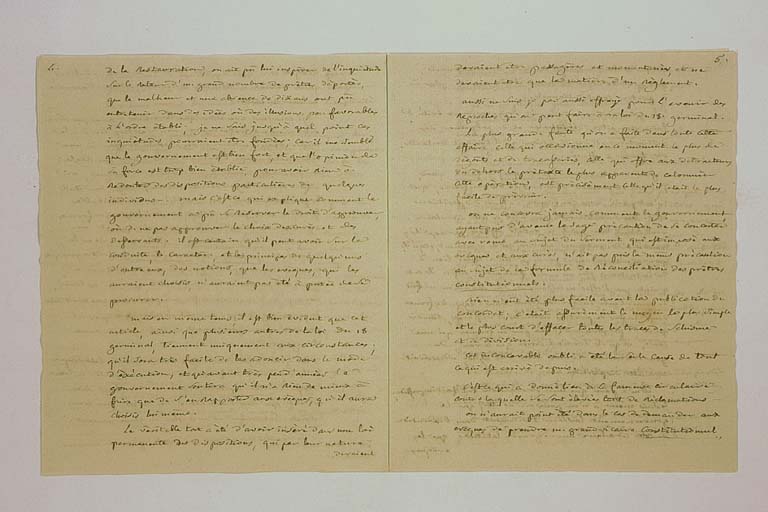 4.
de la Restauration, on ait pu lui inspirer de l'inquiétude
sur le retour d'un grand nombre de prêtres déportés,
que le malheur et une absence de dix ans ont pu
entretenir dans des idées ou des illusions peu favorables
à l'ordre établi, je ne sais jusqu'à quel point ces
inquiétudes pourraient être fondées; car il me semble
que le gouvernement est bien fort, et que l'opinion de
sa force est trop bien établie pour avoir rien à
redouter des dispositions particulières de quelques
individus. mais c'est ce qui explique comment le
gouvernement a pu se réserver le droit d'approuver
ou de ne pas approuver le choix des curés et des
desservants. il est certain qu'il peut avoir sur la
conduite, le caractère, et les principes de quelques uns
d'entre eux, des notions, que les evêques, qui les
auraient choisis n'auraient pas été à portée de se
procurer.
mais en même tems, il est bien évident que cet
article, ainsi que plusieurs autres de la loi du 18
germinal, tiennent uniquement aux circonstances;
qu'il sera très facile de les adoucir dans le mode
d'exécution, et qu'avant très peu d'années le
gouvernement sentira qu'il n'a rien de mieux à
faire que de s'en rapporter aux evêques, qu'il aura
choisis lui même.
Le véritable tort a été d'avoir inséré dans une loi
permanente des dispositions, qui par leur nature,
devaient
5.
devaient être passagères et momentanées, et ne
devaient être que la matière d'un Règlement.
aussi ne suis je pas aussi effrayé pour l'avenir des
Reproches qu'on peut faire à la loi du 18 germinal.
La plus grande faute qu'on a faite dans toute cette
affaire, celle qui occasionne en ce moment le plus de
décrets et de tracasseries, celle qui offre aux détracteurs
du dehors le prétexte le plus apparent de calomnier
cette opération, est précisément celle qu'il était le plus
facile de prévenir.
on ne concevra jamais comment le gouvernement,
ayant pris d'avance la sage précaution de se concerter
avec rome au sujet du serment qui est imposé aux
evêques et aux curés, n'ait pas pris la même précaution
au sujet de la formule de Réconciliation des prêtres
constitutionnels.
rien n'eut été plus facile avant la publication du
concordat; c'était assurément le moyen le plus simple
et le plus court d'effacer toutes les traces de schisme
et de division.
Cet inconcevable oubli a été la seule cause de tout
ce qui est arrivé depuis.
C'est ce qui a donné lieu à la fameuse circulaire
contre laquelle se sont élevées tant de Réclamations
on n'aurait point été dans le cas de demander aux
evêques de prendre un grand vicaire Constitutionnel,